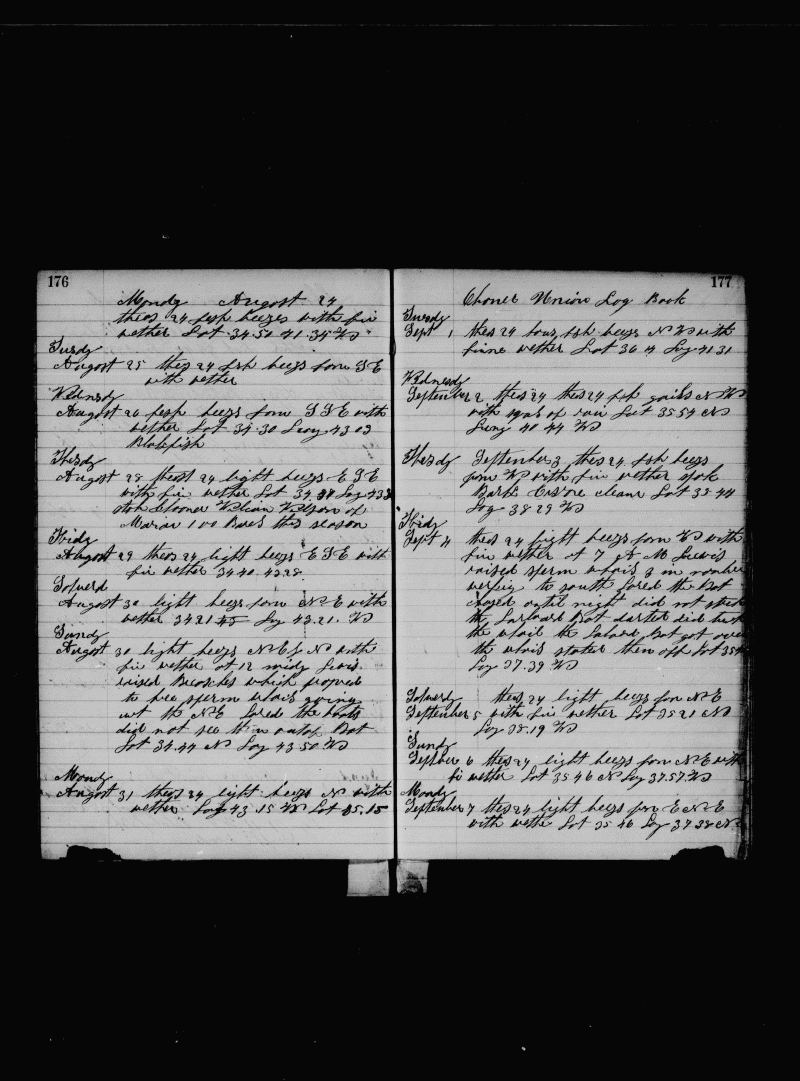 176
Mondy August 24
theas 24 fresh beezes with fin
wether Lat 34.50 41.35 W
Tusdy
August 25 thes 24 fsh beezs from S E
with wether
Wednsdy
August 26 fresh beezs from S S E with
wether Lat 34.30 Long 43 03
Blackfish
Thirsdy
August 28 theas 24 light beezs E S E
with fin wether Lat 34 Log 43
Scooner William Wilson of
Marion 100 Barels this season
Fridy
August 29 theas 24 light beezs E S E with
fin wether 34 40 43.28
Soturd
August 30 light beezs from N E with
wether 34 21 Log 43.21. W
Sundy
August 30 light beezs N E & N with
fin wether at 12 midy Lewis
raised Breaches which proved
to bee sperm whais going
out the N E lored the boats
did not see them ontop Bot
Lat 34.44 N Log 43 50 W
Mondy
August 31 theas 24 light beezs N with
wether Log 43 15 W Lat 35.15
177
Union Log Book
Tuesdy
Sept 1 thes 24 fsh beezs N W with
finne wether Lat 36 4 Log 41 31
Wednesdy
September 2 thes 24 thes 24 fsh gails N W
with of rain Lat 35 54 N
Long 40 44 W
Thirsdy September 3 thes 24 fsh beezs
from W with fin wether spok
Bark cleane Lat 35 44
Log 38 29 W
Fridy
Sept 4 theas 24 light beezs from W with
fin wether at 7 M Lewis
raised sperm whais 3 in number
to south lored the Bot
chased until night did not
the Larboard Bot darted did
the whail the Labord Bot got over
the whais then off Lat 35
Log 37.39 W
Soturdy thes 24 light beezs from N E
September 5 with fin wether Lat 35 21 N
Log 38.19 W
Sundy
September 6 thes 24 light beezs from N E with
fin wether Lat 35 46 N Log 37 57 W
Mondy
September 7 thes 24 light beezs from E N E
with wethe Lat 35 46 Log 37 38